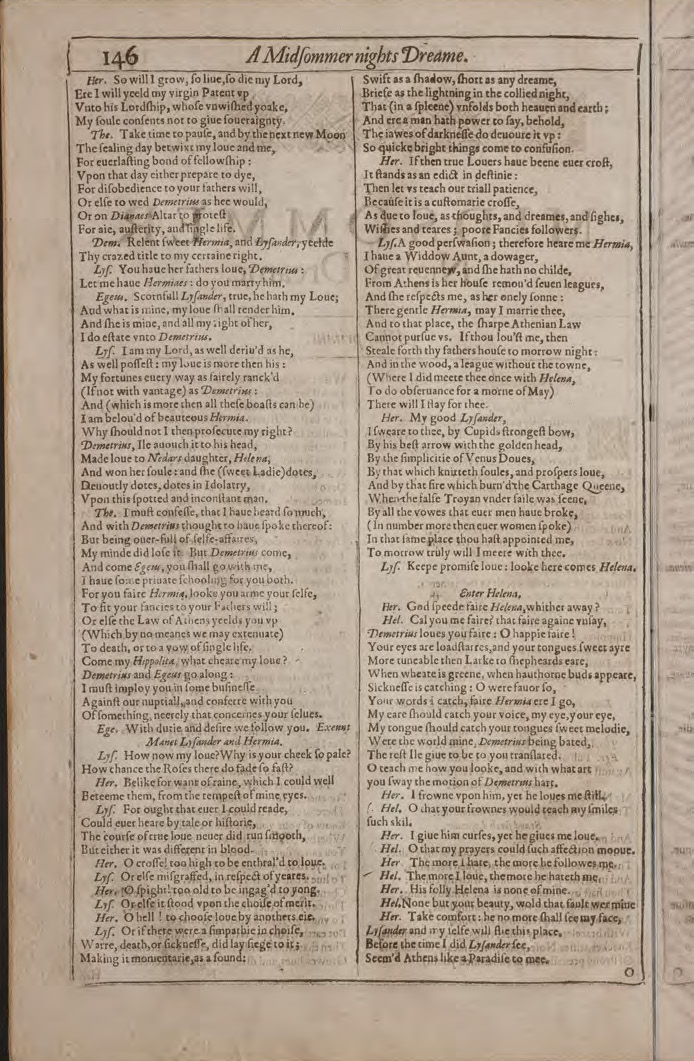 146 A Midſommer nights Dreame.
Her. So will I grow, ſo liue, ſo die my Lord,
Ere I will yeeld my virgin Patent vp
Vnto his Lordſhip, whoſe vnwiſhed yoake,
My ſoule conſents not to giue ſoueraignty.
The. Take time to pauſe, and by the next new Moon
The ſealing day betwixt my loue and me,
For euerlaſting bond of fellowſhip:
Vpon that day either prepare to dye,
For diſobedience to your fathers will,
Or elſe to wed Demetrius as hee would,
Or on Dianaes Altar to proteſt
For aie, auſterity, and ſingle life.
Dem. Relent ſweet Hermia, and Lyſander, yeelde
Thy crazed title to my certaine right.
Lyſ. You haue her fathers loue, Demetrius:
Let me haue Hermiaes: do you marry him.
Egeus. Scornfull Lyſander, true, he hath my Loue;
And what is mine, my loue ſhall render him.
And ſhe is mine, and all my right of her,
I do eſtate vnto Demetrius.
Lyſ. I am my Lord, as well deriu'd as he,
As well poſſeſt: my loue is more then his:
My fortunes euery way as fairely ranck'd
(If not with vantage) as Demetrius:
And (which is more then all theſe boaſts can be)
I am belou'd of beauteous Hermia.
Why ſhould not I then proſecute my right?
Demetrius, Ile auouch it to his head,
Made loue to Nedars daughter, Helena,
And won her ſoule: and ſhe (ſweet Ladie) dotes,
Deuoutly dotes, dotes in Idolatry,
Vpon this ſpotted and inconſtant man.
The. I muſt confeſſe, that I haue heard ſo much,
And with Demetrius thought to haue ſpoke thereof:
But being ouer-full of ſelfe-affaires,
My minde did loſe it. But Demetrius come,
And come Egeus, you ſhall go with me,
I haue ſome priuate ſchooling for you both.
For you faire Hermia, looke you arme your ſelfe,
To fit your fancies to your Fathers will;
Or elſe the Law of Athens yeelds you vp
(Which by no meanes we may extenuate)
To death, or to a vow of ſingle life.
Come my Hippolita, what cheare my loue?
Demetrius and Egeus go along:
I muſt imploy you in ſome buſineſſe
Againſt our nuptiall, and conferre with you
Of ſomething, neerely that concernes your ſelues.
Ege. With dutie and deſire we follow you. Exeunt
Manet Lyſander and Hermia.
Lyſ. How now my loue? Why is your cheek ſo pale?
How chance the Roſes there do fade ſo faſt?
Her. Belike for want of raine, which I could well
Beteeme them, from the tempeſt of mine eyes.
Lyſ. For ought that euer I could reade,
Could euer heare by tale or hiſtorie,
The courſe of true loue neuer did run ſmooth,
But either it was different in blood.
Her. O croſſe! too high to be enthral'd to loue.
Lyſ. Or elſe miſgraffed, in reſpect of yeares.
Her. O ſpight! too old to be ingag'd to yong.
Lyſ. Or elſe it ſtood vpon the choiſe of merit.
Her. O hell! to chooſe loue by anothers eie.
Lyſ. Or if there were a ſimpathie in choiſe,
Warre, death, or ſickneſſe, did lay ſiege to it;
Making it momentarie, as a ſound:
Swift as a ſhadow, ſhort as any dreame,
Briefe as the lightning in the collied night,
That (in a ſpleene) vnfolds both heauen and earth;
And ere a man hath power to ſay, behold,
The iawes of darkneſſe do deuoure it vp:
So quicke bright things come to confuſion.
Her. If then true Louers haue beene euer croſt,
It ſtands as an edict in deſtinie:
Then let vs teach our triall patience,
Becauſe it is a cuſtomarie croſſe,
As due to loue, as thoughts, and dreames, and ſighes,
Wiſhes and teares; poore Fancies followers.
Lyſ. A good perſwaſion; therefore heare me Hermia,
I haue a Widdow Aunt, a dowager,
Of great reuennew, and ſhe hath no childe,
From Athens is her houſe remou'd ſeuen leagues,
And ſhe reſpects me, as her onely ſonne:
There gentle Hermia, may I marrie thee,
And to that place, the ſharpe Athenian Law
Cannot purſue vs. If thou lou'ſt me, then
Steale forth thy fathers houſe to morrow night:
And in the wood, a league without the towne,
(Where I did meete thee once with Helena,
To do obſeruance for a morne of May)
There will I ſtay for thee.
Her. My good Lyſander,
I ſweare to thee, by Cupids ſtrongeſt bow,
By his beſt arrow with the golden head,
By the ſimplicitie of Venus Doues,
By that which knitteth ſoules, and proſpers loue,
And by that fire which burn'd the Carthage Queene,
When the falſe Troyan vnder ſaile was ſeene,
By all the vowes that euer men haue broke,
(In number more then euer women ſpoke)
In that ſame place thou haſt appointed me,
To morrow truly will I meete with thee.
Lyſ. Keepe promiſe loue: looke here comes Helena.
Enter Helena.
Her. God ſpeede faire Helena, whither away?
Hel. Cal you me faire? that faire againe vnſay,
Demetrius loues you faire: O happie faire!
Your eyes are loadſtarres, and your tongues ſweet ayre
More tuneable then Larke to ſhepheards eare,
When wheate is greene, when hauthorne buds appeare,
Sickneſſe is catching: O were fauor ſo,
Your words I catch, faire Hermia ere I go,
My eare ſhould catch your voice, my eye, your eye,
My tongue ſhould catch your tongues ſweet melodie,
Were the world mine, Demetrius being bated,
The reſt Ile giue to be to you tranſlated.
O teach me how you looke, and with what art
you ſway the motion of Demetrius hart.
Her. I frowne vpon him, yet he loues me ſtill.
Hel. O that your frownes would teach my ſmiles
ſuch skil.
Her. I giue him curſes, yet he giues me loue.
Hel. O that my prayers could ſuch affection mooue.
Her. The more I hate, the more he followes me.
Hel. The more I loue, the more he hateth me.
Her. His folly Helena is none of mine.
Hel. None but your beauty, wold that fault wer mine
Her. Take comfort: he no more ſhall ſee my face,
Lyſander and my ſelfe will flie this place.
Before the time I did Lyſander ſee,
Seem'd Athens like a Paradiſe to mee.
O